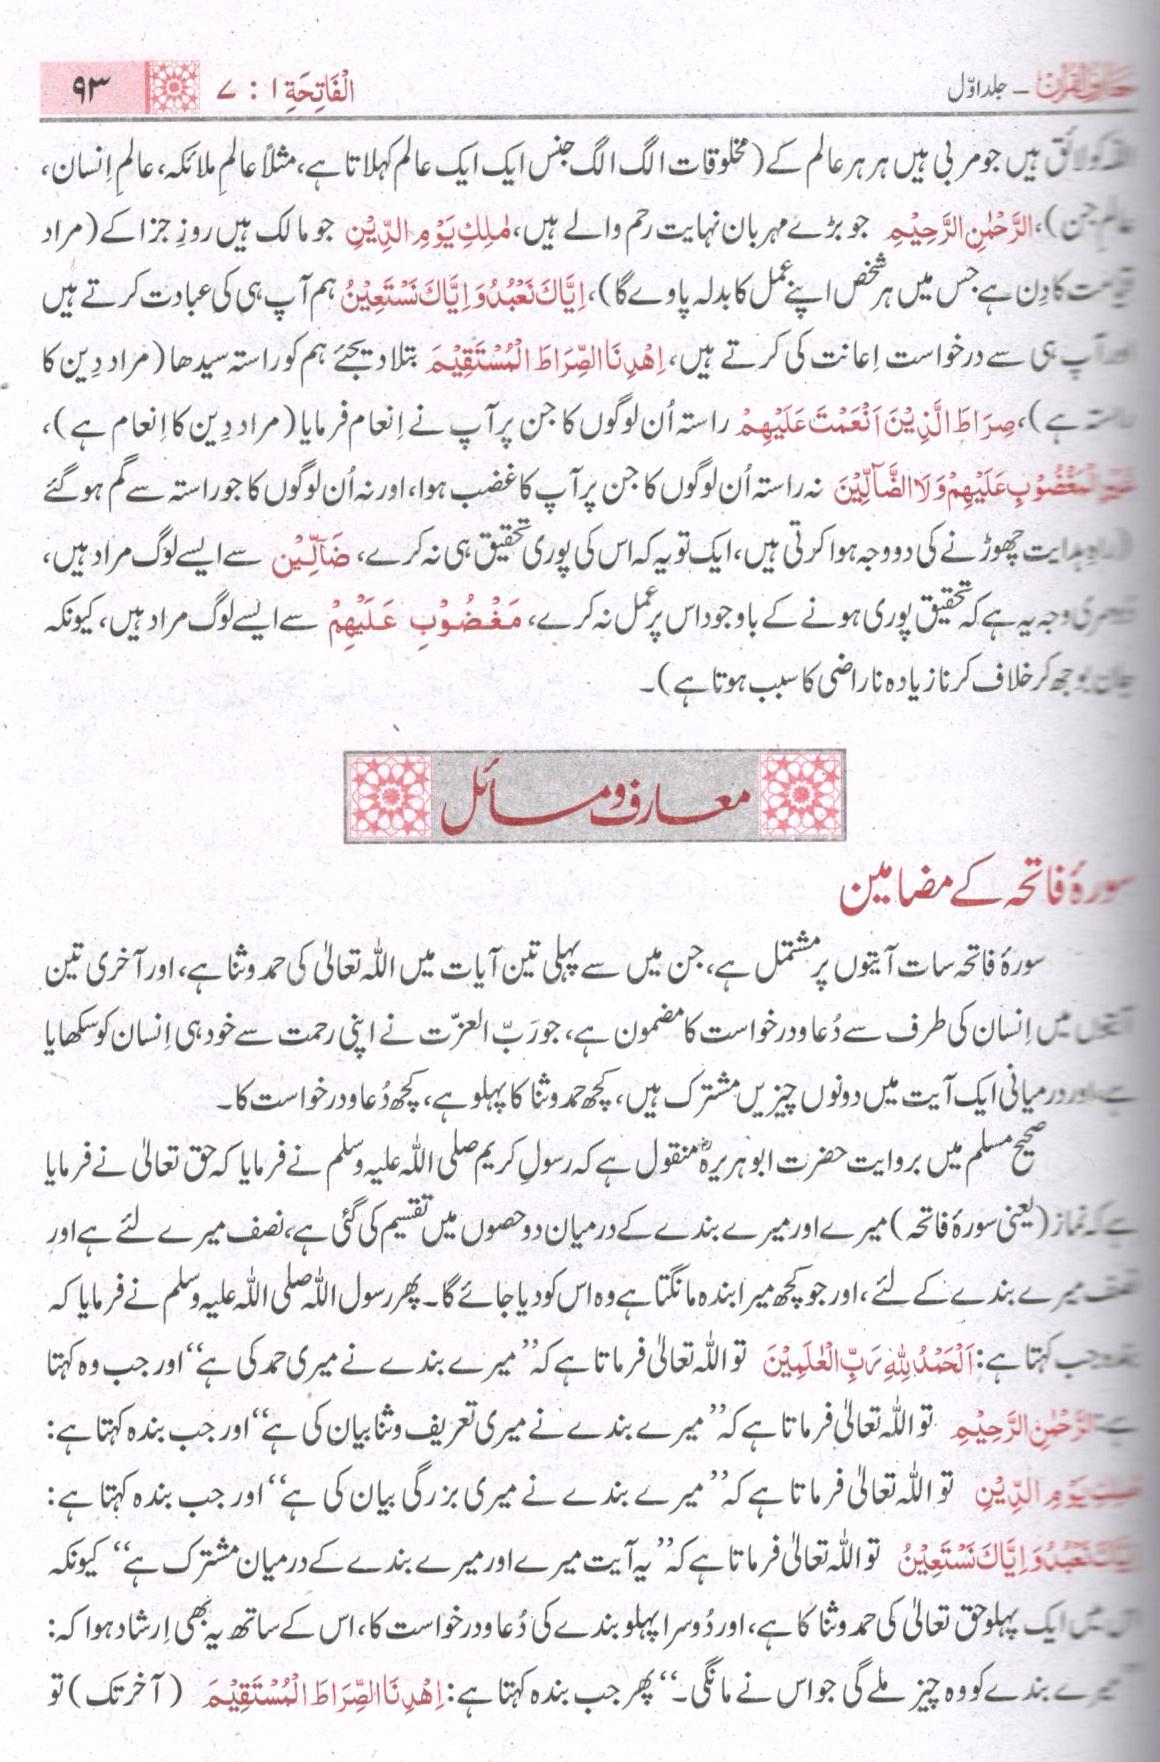 معارف القرآن - جلد اوّل الْفَاتِحَةِ ۱ : ۷ ۹۳
اللہ کو لائق ہیں جو مربی ہیں ہر ہر عالم کے (مخلوقات الگ الگ جنس ایک ایک عالم کہلاتا ہے، مثلاً عالمِ ملائکہ، عالمِ اِنسان،
عالمِ جن)، الرَّحْمٰنِ الرَّحِيْمِ جو بڑے مہربان نہایت رحم والے ہیں، مٰلِكِ يَوْمِ الدِّيْنِ جو مالک ہیں روزِ جزا کے (مراد
قیامت کا دِن ہے جس میں ہر شخص اپنے عمل کا بدلہ پاوے گا)، اِيَّاكَ نَعْبُدُ وَ اِيَّاكَ نَسْتَعِيْنُ ہم آپ ہی کی عبادت کرتے ہیں
اور آپ ہی سے درخواست اِعانت کی کرتے ہیں، اِهْدِنَا الصِّرَاطَ الْمُسْتَقِيْمَ بتلا دیجئے ہم کو راستہ سیدھا (مراد دِین کا
راستہ ہے)، صِرَاطَ الَّذِيْنَ اَنْعَمْتَ عَلَيْهِمْ راستہ اُن لوگوں کا جن پر آپ نے اِنعام فرمایا (مراد دِین کا اِنعام ہے)،
غَيْرِ الْمَغْضُوْبِ عَلَيْهِمْ وَلَا الضَّآلِّيْنَ نہ راستہ اُن لوگوں کا جن پر آپ کا غضب ہوا، اور نہ اُن لوگوں کا جو راستہ سے گم ہو گئے
(راہِ ہدایت چھوڑنے کی دو وجہ ہوا کرتی ہیں، ایک تو یہ کہ اس کی پوری تحقیق ہی نہ کرے، ضَآلِّيْن سے ایسے لوگ مراد ہیں،
دُوسری وجہ یہ ہے کہ تحقیق پوری ہونے کے باوجود اس پر عمل نہ کرے، مَغْضُوْبِ عَلَيْهِمْ سے ایسے لوگ مراد ہیں، کیونکہ
جان بوجھ کر خلاف کرنا زیادہ ناراضی کا سبب ہوتا ہے)۔
معارف و مسائل
سورۂ فاتحہ کے مضامین
سورۂ فاتحہ سات آیتوں پر مشتمل ہے، جن میں سے پہلی تین آیات میں اللہ تعالیٰ کی حمد و ثنا ہے، اور آخری تین
آیتوں میں اِنسان کی طرف سے دُعا و درخواست کا مضمون ہے، جو رَبّ العزّت نے اپنی رحمت سے خود ہی اِنسان کو سکھایا
ہے، اور درمیانی ایک آیت میں دونوں چیزیں مشترک ہیں، کچھ حمد و ثنا کا پہلو ہے، کچھ دُعا و درخواست کا۔
صحیح مسلم میں بروایت حضرت ابو ہریرہؓ منقول ہے کہ رسولِ کریم صلی اللہ علیہ وسلم نے فرمایا کہ حق تعالیٰ نے فرمایا
ہے کہ نماز (یعنی سورۂ فاتحہ) میرے اور میرے بندے کے درمیان دو حصوں میں تقسیم کی گئی ہے، نصف میرے لئے ہے اور
نصف میرے بندے کے لئے، اور جو کچھ میرا بندہ مانگتا ہے وہ اس کو دیا جائے گا۔ پھر رسول اللہ صلی اللہ علیہ وسلم نے فرمایا کہ
بندہ جب کہتا ہے: اَلْحَمْدُ لِلّٰهِ رَبِّ الْعٰلَمِيْنَ تو اللہ تعالیٰ فرماتا ہے کہ ’’میرے بندے نے میری حمد کی ہے‘‘ اور جب وہ کہتا
ہے: الرَّحْمٰنِ الرَّحِيْمِ تو اللہ تعالیٰ فرماتا ہے کہ ’’میرے بندے نے میری تعریف و ثنا بیان کی ہے‘‘ اور جب بندہ کہتا ہے:
مٰلِكِ يَوْمِ الدِّيْنِ تو اللہ تعالیٰ فرماتا ہے کہ ’’میرے بندے نے میری بزرگی بیان کی ہے‘‘ اور جب بندہ کہتا ہے:
اِيَّاكَ نَعْبُدُ وَ اِيَّاكَ نَسْتَعِيْنُ تو اللہ تعالیٰ فرماتا ہے کہ ’’یہ آیت میرے اور میرے بندے کے درمیان مشترک ہے‘‘ کیونکہ
اس میں ایک پہلو حق تعالیٰ کی حمد و ثنا کا ہے، اور دُوسرا پہلو بندے کی دُعا و درخواست کا، اس کے ساتھ یہ بھی اِرشاد ہوا کہ:
’’میرے بندے کو وہ چیز ملے گی جو اس نے مانگی۔‘‘ پھر جب بندہ کہتا ہے: اِهْدِنَا الصِّرَاطَ الْمُسْتَقِيْمَ (آخر تک) تو